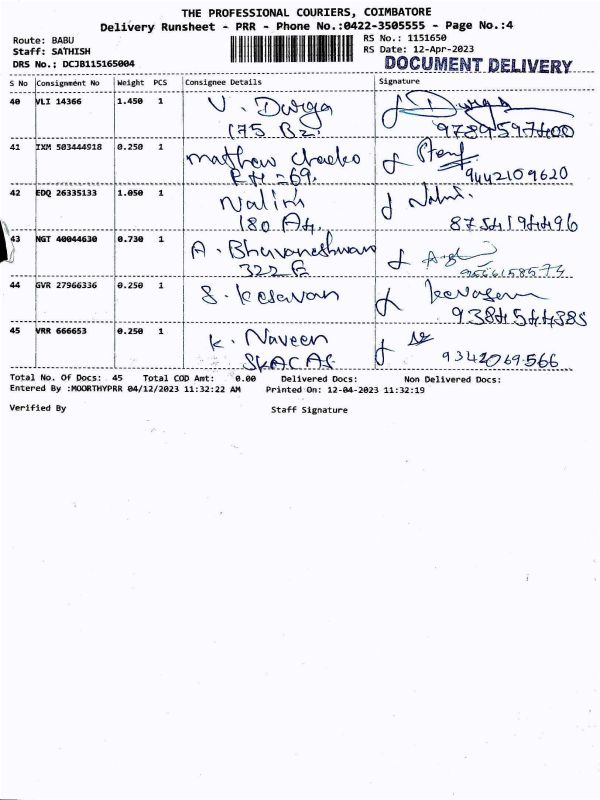 THE PROFESSIONAL COURIERS, COIMBATORE
Delivery Runsheet - PRR - Phone No.:0422-3505555 - Page No.:4
Route: BABU RS No.: 1151650
Staff: SATHISH RS Date: 12-Apr-2023
DRS No.: DCJB115165004 DOCUMENT DELIVERY
S No Consignment No Weight PCS Consignee Details Signature
40 VLI 14366 1.450 1 V. Durga Durga
175 B2. 9789597400
41 IXM 503444918 0.250 1 mathew chacko
RH =69. 9442109620
42 EDQ 26335133 1.050 1 Nalini Nalini.
180 A4. 8754194496
43 NGT 40044630 0.730 1 A. Bhuvaneshwari
322 E 9566158574
44 GVR 27966336 0.250 1 S. Kesavan
9384544385
45 VRR 666653 0.250 1 K. Naveen
SKACAS 9342069566
Total No. Of Docs: 45 Total COD Amt: 0.00 Delivered Docs: Non Delivered Docs:
Entered By :MOORTHYPRR 04/12/2023 11:32:22 AM Printed On: 12-04-2023 11:32:19
Verified By Staff Signature